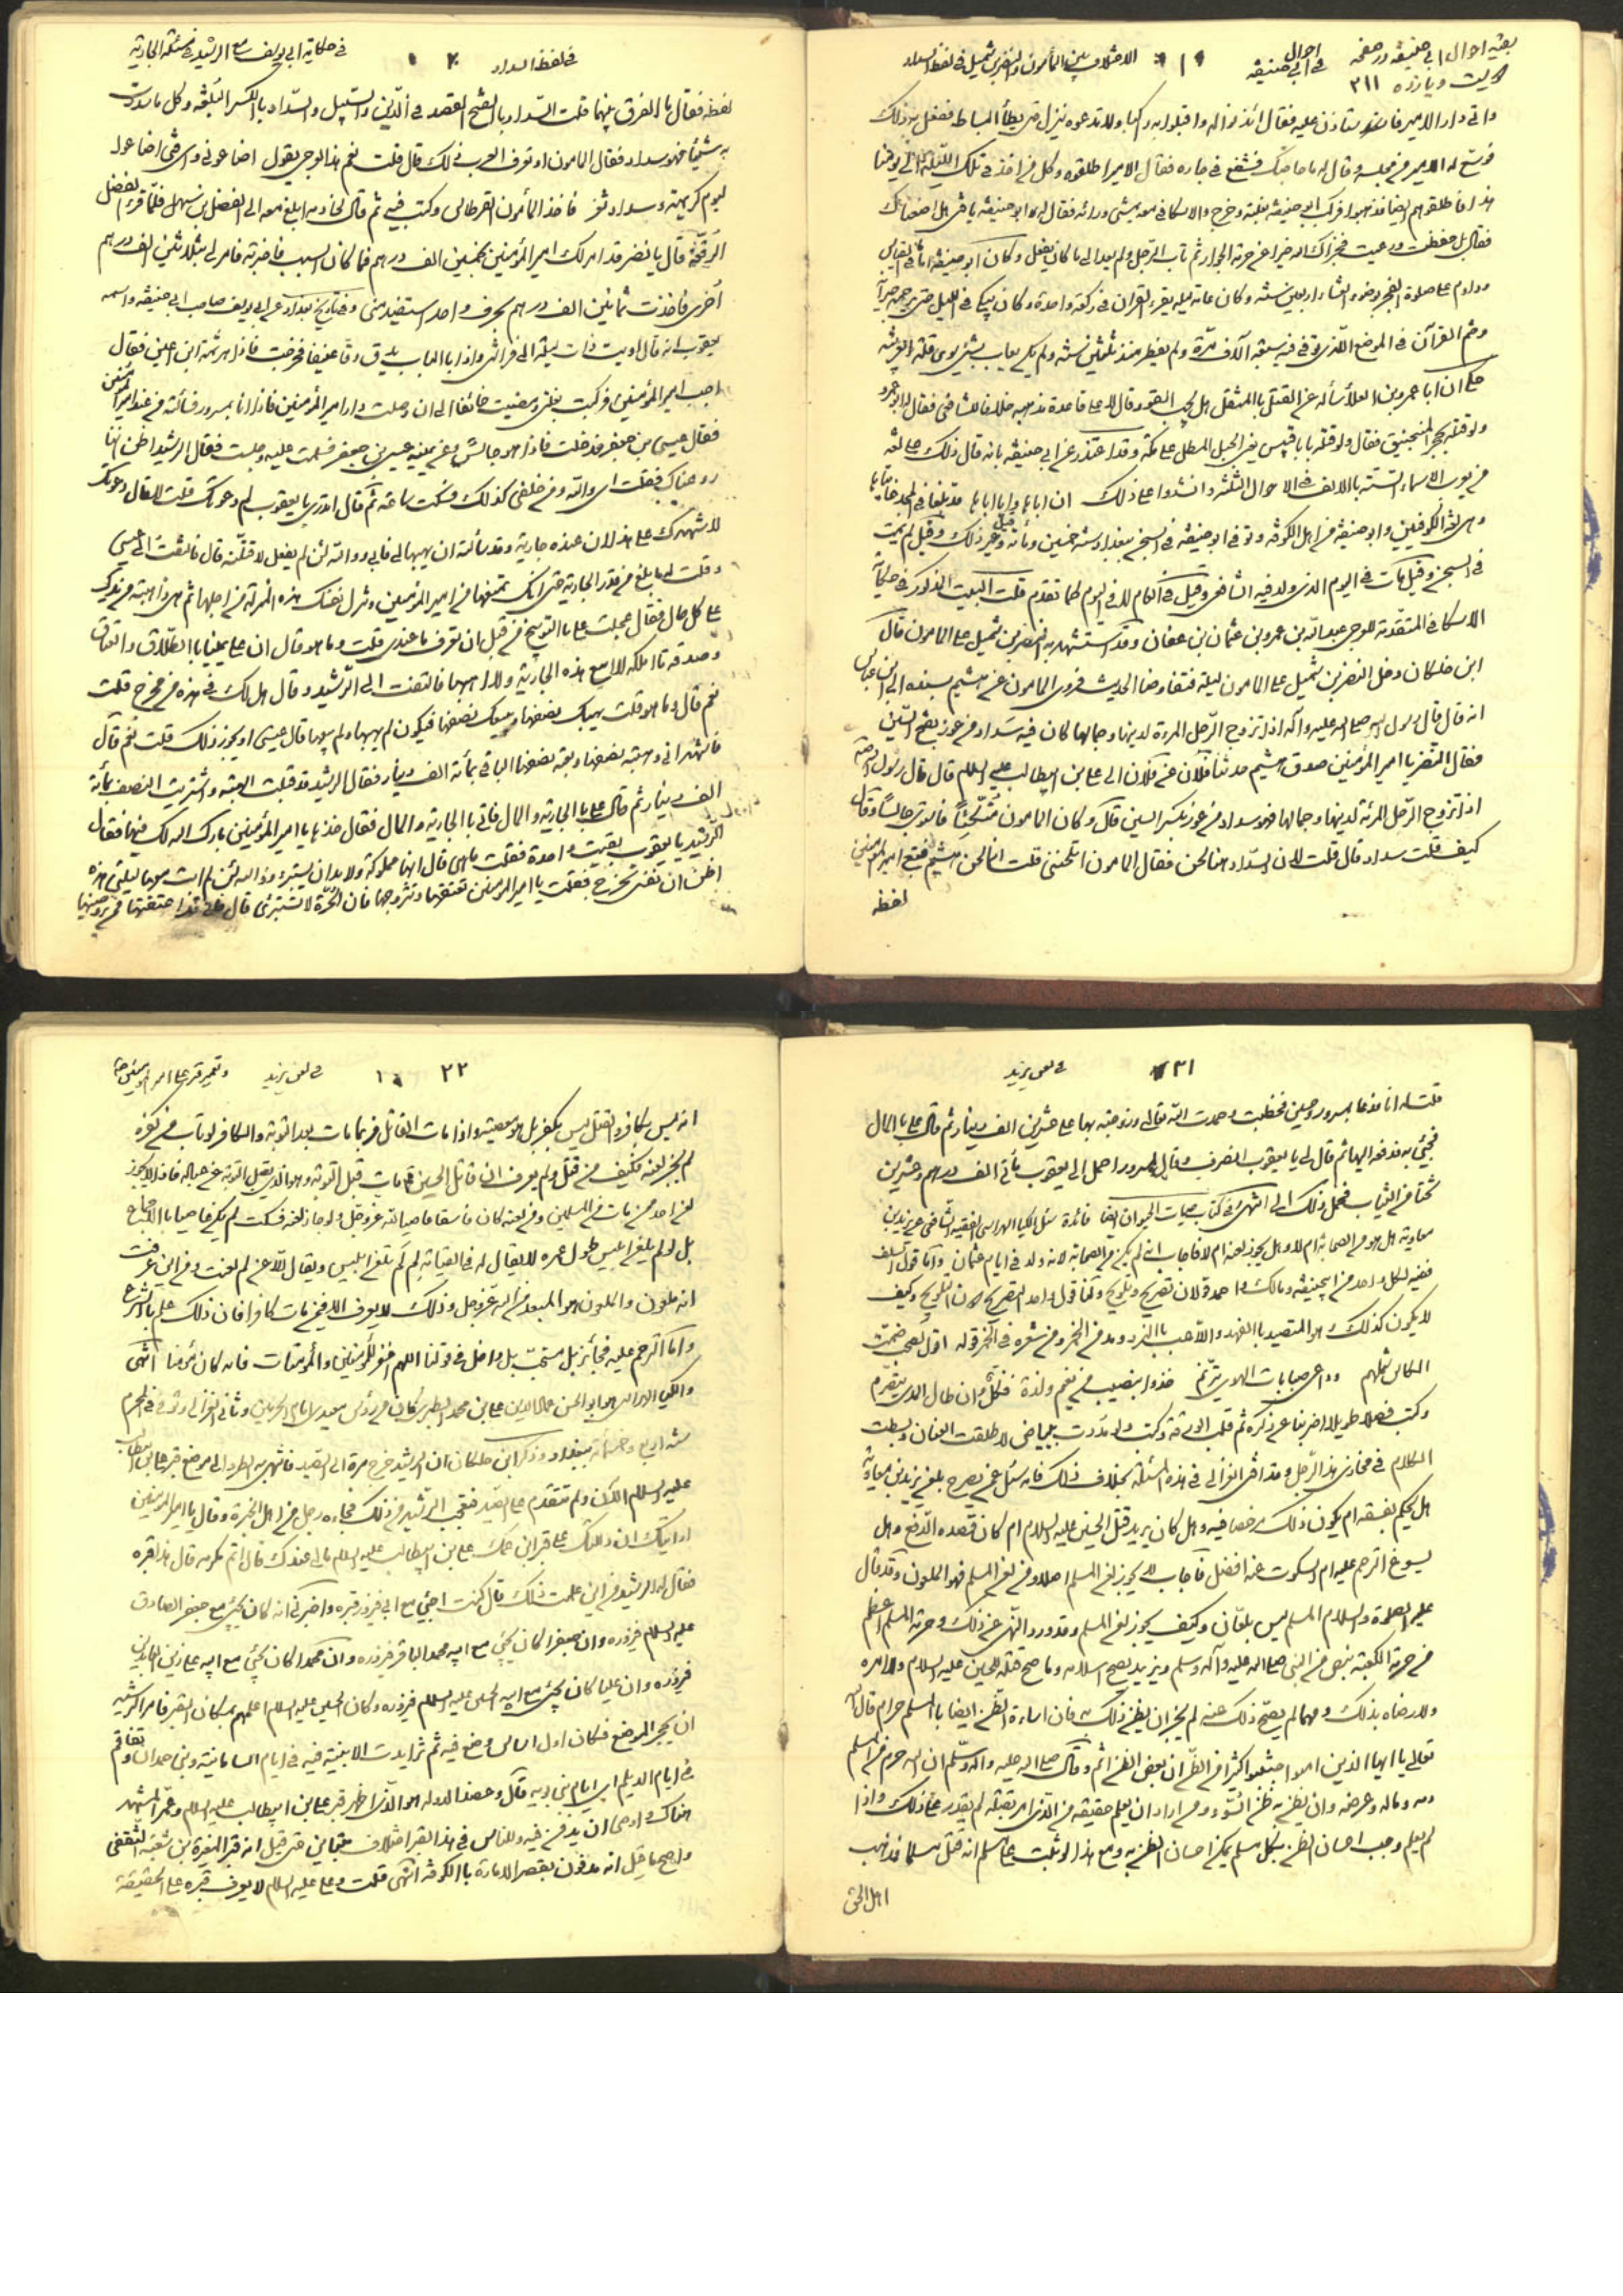 بقیه احوال ابی حنیفه در صفحه
۳۱۱
احوال
فی ابی حنیفه
۱۹
الاختلاف بین المأمون والنضر بن شمیل فی لفظ السداد
واتی دار الامیر فاستأذن علیه فقال ائذنوا له واقبلوا به راکبا ولا تدعوه ینزل حتی یطأ البساط ففعل به ذلک
فوسع له الامیر من مجلسه وقال له ما حاجتک فشفع فی جاره فقال الامیر اطلقوه وکل من اخذ فی تلک اللیلة الی یومنا
هذا فاطلقوهم ایضا فذهبوا فرکب ابو حنیفه بغلته وخرج والاسکافی معه یمشی ورائه فقال له ابو حنیفه یا فتی هل اضعناک
فقال بل حفظت ورعیت فجزاک الله خیرا عن حرمة الجوار ثم تاب الرجل ولم یعد الی ما کان یفعل وکان ابو حنیفه اماما فی القیاس
وداوم علی صلوة الفجر بوضوء العشاء اربعین سنة وکان عامة لیله یقرء القرآن فی رکعة واحدة وکان یبکی فی اللیل حتی یرحمه جیرانه
وختم القرآن فی الموضع الذی توفی فیه سبعة آلاف مرة ولم یفطر منذ ثلثین سنة ولم یکن یعاب بشیئ سوی قلة العربیة
حکی ان ابا عمرو بن العلاء سأله عن القتل بالمثقل هل یجب القود قال لا علی قاعدة مذهبه خلافا للشافعی فقال له ابو عمرو
ولو قتله بحجر المنجنیق فقال ولو قتله بابا قبیس یعنی الجبل المطل علی مکة وقد اعتذر عن ابی حنیفه بانه قال ذلک علی لغة
من یعرب الاسماء الستة بالالف فی الاحوال الثلثة وانشدوا علی ذلک ان اباها وابا اباها قد بلغا فی المجد غایتاها
وهی لغة الکوفیین وابو حنیفه من اهل الکوفه وتوفی ابو حنیفه فی السجن ببغداد سنة خمسین ومأة وقیل غیر ذلک وقیل لم یمت
فی السجن وقیل مات فی الیوم الذی ولد فیه الشافعی وقیل فی العام لا فی الیوم کما تقدم قلت البیت المذکور فی حکایة
الاسکافی المتقدمة للعرجی عبد الله بن عمرو بن عثمان بن عفان وقد استشهد به النضر بن شمیل علی المامون قال
ابن خلکان دخل النضر بن شمیل علی المامون لیلة فتفاوضا الحدیث فروی المامون عن هشیم بسنده الی ابن عباس
انه قال قال رسول الله صلی الله علیه وآله اذا تزوج الرجل المرءة لدینها وجمالها کان فیه سداد من عوز بفتح السین
فقال النضر یا امیر المؤمنین صدق هشیم حدثنا فلان عن فلان الی علی بن ابیطالب علیه السلام قال قال رسول الله
اذا تزوج الرجل المرئة لدینها وجمالها فهو سداد من عوز بکسر السین قال وکان المامون متکئا فاستوی جالسا وقال
کیف قلت سداد قال قلت لان السداد هنا لحن فقال المامون اتلحننی قلت انما لحن هشیم فتبع امیر المؤمنین
لفظه
فی لفظ السداد
۲۰
فی حکایة ابی یوسف مع الرشید فی مسئلة الجاریة
لفظه فقال ما الفرق بینهما قلت السداد بالفتح القصد فی الدین والسبیل والسداد بالکسر البلغة وکل ما سددت
به شیئا فهو سداد فقال المامون او تعرف العرب ذلک قال قلت نعم هذا العرجی یقول اضاعونی وای فتی اضاعوا
لیوم کریهة وسداد ثغر فاخذ المأمون القرطاس وکتب فیه ثم قال لخادمه ابلغ معه الی الفضل بن سهل فلما قرء الفضل
الرقعة قال یا نضر قد امر لک امیر المؤمنین بخمسین الف درهم فما کان السبب فاخبرته فامر لی بثلاثین الف درهم
اخری فاخذت ثمانین الف درهم بحرف واحد استفید منی وفی تاریخ بغداد عن ابی یوسف صاحب ابی حنیفه واسمه
یعقوب انه قال اویت ذات لیلة الی فراشی واذا بالباب یدق دقا عنیفا فخرجت فاذا هرثمة ابن اعین فقال
اجب امیر المؤمنین فرکبت بغلتی ومضیت خائفا الی ان وصلت دار امیر المؤمنین فاذا انا بمسرور فسألته من عند امیر المؤمنین
فقال عیسی بن جعفر فدخلت فاذا هو جالس وعن یمینه عیسی بن جعفر فسلمت علیه وجلست فقال الرشید اظن اننا
روعناک فقلت ای والله ومن خلفی کذلک فسکت ساعة ثم قال اتدری یا یعقوب لم دعوتک قلت لا قال دعوتک
لاشهدک علی هذا ان عنده جاریة وقد سألته ان یهبها لی فابی ووالله لئن لم یفعل لاقتلنه قال فالتفت الی عیسی
وقلت له ما بلغ من قدر الجاریة حتی انک تمنعها من امیر المؤمنین وتنزل نفسک هذه المنزلة من اجلها ثم هی ذاهبة من یدک
علی کل حال فقال عجلت علی بالتوبیخ من قبل ان تعرف ما عندی قلت وما هو قال ان علی یمینا بالطلاق والعتاق
وصدقة ما املکه لا ابیع هذه الجاریة ولا اهبها فالتفت الی الرشید وقال هل لک فی هذه من مخرج قلت
نعم قال وما هو قلت یهبک نصفها ویبیعک نصفها فیکون لم یهبها ولم یبعها قال عیسی او یجوز ذلک قلت نعم قال
فاشهد انی وهبته نصفها وبعته نصفها الباقی بمأة الف دینار فقال الرشید قد قبلت الهبة واشتریت النصف بمأة
الف دینار ثم قال علی بالجاریة والمال فاتی بالجاریة والمال فقال خذها یا امیر المؤمنین بارک الله لک فیها فقال
الرشید یا یعقوب بقیت واحدة فقلت ما هی قال انها مملوکة ولابد ان یستبرء ووالله لئن لم ابت معها لیلتی هذه
اظن ان نفسی تخرج فقلت یا امیر المؤمنین تعتقها وتتزوجها فان الحرة لا تستبرئ قال فانی قد اعتقتها فمن یزوجنیها
۲۱
فی لعن یزید
قلت له انا فدعا بمسرور وحسین فخطبت وحمدت الله تعالی وزوجته بها علی عشرین الف دینار ثم قال علی بالمال
فجیئ به فدفعه الیها ثم قال لی یا یعقوب انصرف وقال لمسرور احمل الی یعقوب مأتی الف درهم وعشرین
تختا من الثیاب فحمل ذلک الی انتهی وفی کتاب حیات الحیوان ایضا فائدة سئل الکیا الهراسی الفقیه الشافعی عن یزید بن
معاویة هل هو من الصحابة ام لا وهل یجوز لعنه ام لا فاجاب انه لم یکن من الصحابة لانه ولد فی ایام عثمان واما قول السلف
ففیه لکل واحد من ابیحنیفه ومالک واحمد قولان تصریح وتلویح ولنا قول واحد التصریح دون التلویح وکیف
لا یکون کذلک وهو المتصید بالفهد واللاعب بالنرد ومدمن الخمر ومن شعره فی الخمر قوله اقول لصحب ضمت
الکاس شملهم وداعی صبابات الهوی یترنم خذوا بنصیب من نعیم ولذة فکل وان طال المدی یتصرم
وکتب فصلا طویلا اضربنا عن ذکره ثم قلب الورقة وکتب ولو مددت ببیاض لاطلقت العنان وبسطت
الکلام فی مخازی هذا الرجل وقد افتی الغزالی فی هذه المسئلة بخلاف ذلک فانه سئل عن من یصرح بلعن یزید بن معاویة
هل یحکم بفسقه ام یکون ذلک مرخصا فیه وهل کان یرید قتل الحسین علیه السلام ام کان قصده الدفع وهل
یسوغ الترحم علیه ام السکوت عنه افضل فاجاب لا یجوز لعن المسلم اصلا ومن لعن المسلم فهو الملعون وقد قال
علیه الصلوة والسلام المسلم لیس بلعان وکیف یجوز لعن المسلم وقد ورد النهی عن ذلک وحرمة المسلم اعظم
من حرمة الکعبة بنص من النبی صلی الله علیه وآله وسلم ویزید یصح اسلامه وما صح قتله للحسین علیه السلام ولا امره
ولا رضاه بذلک ومهما لم یصح ذلک عنه لم یجز ان یظن ذلک به فان اساءة الظن ایضا بالمسلم حرام قال الله
تعالی یا ایها الذین امنوا اجتنبوا کثیرا من الظن ان بعض الظن اثم وقال صلی الله علیه وآله وسلم ان الله حرم من المسلم
دمه وماله وعرضه وان یظن به ظن السوء ومن اراد ان یعلم حقیقة من الذی امر بقتله لم یقدر علی ذلک واذا
لم یعلم وجب احسان الظن بکل مسلم یمکن احسان الظن به ومع هذا لو ثبت علی مسلم انه قتل مسلما فمذهب
اهل الحق
۲۲
فی لعن یزید
انه لیس بکافر والقتل لیس بکفر بل هو معصیة واذا مات القاتل فربما مات بعد التوبة والکافر لو تاب من کفره
لم یجز لعنه فکیف من قتل ولم یعرف ان قاتل الحسین مات قبل التوبة وهو الذی یقبل التوبة عن عباده فاذا لا یجوز
لعن احد ممن مات من المسلمین ومن لعنه کان فاسقا عاصیا لله عز وجل ولو جاز لعنه فسکت لم یکن عاصیا بالاجماع
بل لو لم یلعن ابلیس طول عمره لا یقال له فی القیامة لم لم تلعن ابلیس ویقال للاعن لم لعنت ومن این عرفت
انه ملعون والملعون هو المبعد من الله عز وجل وذلک لا یعرف الا فیمن مات کافرا فان ذلک علم بالشرع
واما الترحم علیه فجائز بل مستحب بل داخل فی قولنا اللهم اغفر للمؤمنین والمؤمنات فانه کان مؤمنا انتهی
والکیا الهراسی هو ابو الحسن عماد الدین علی بن محمد الطبری کان من رؤس معیدی امام الحرمین وثانی الغزالی وتوفی فی المحرم
سنة اربع وخمسمأة ببغداد وذکر ابن خلکان ان الرشید خرج مرة الی الصید فانتهی به الطرد الی موضع قبر علی بن ابیطالب
علیه السلام الان ولم تتقدم علی الصید فتعجب الرشید من ذلک فجاءه رجل من اهل الخبرة وقال یا امیر المؤمنین
ارایتک ان دللتک علی قبر ابن عمک علی بن ابیطالب علیه السلام ما لی عندک قال اتم مکرمة قال هذا قبره
فقال له الرشید من این علمت ذلک قال کنت اجیئ مع ابی فیزور قبره واخبرنی انه کان یجیئ مع جعفر الصادق
علیه السلام فیزوره وان جعفرا کان یجیئ مع ابیه محمد الباقر فیزوره وان محمدا کان یجیئ مع ابیه علی زین العابدین
فیزوره وان علیا کان یجیئ مع ابیه الحسین علیه السلام فیزوره وکان الحسین علیه السلام اعلمهم بمکان القبر فامر الرشید
ان یحجر الموضع فکان اول اساس وضع فیه ثم تزایدت الابنیة فیه فی ایام السامانیة وبنی حمدان وتفاقم
فی ایام الدیلم ای ایام بنی بویه قال وعضد الدوله هو الذی اظهر قبر علی بن ابیطالب علیه السلام وعمر المشهد
هناک واوصی ان یدفن فیه وللناس فی هذا القبر اختلاف متباین حتی قیل انه قبر المغیرة بن شعبة الثقفی
واصح ما قیل انه مدفون بقصر الامارة بالکوفه انتهی قلت وعلی علیه السلام لا یعرف قبره علی الحقیقة